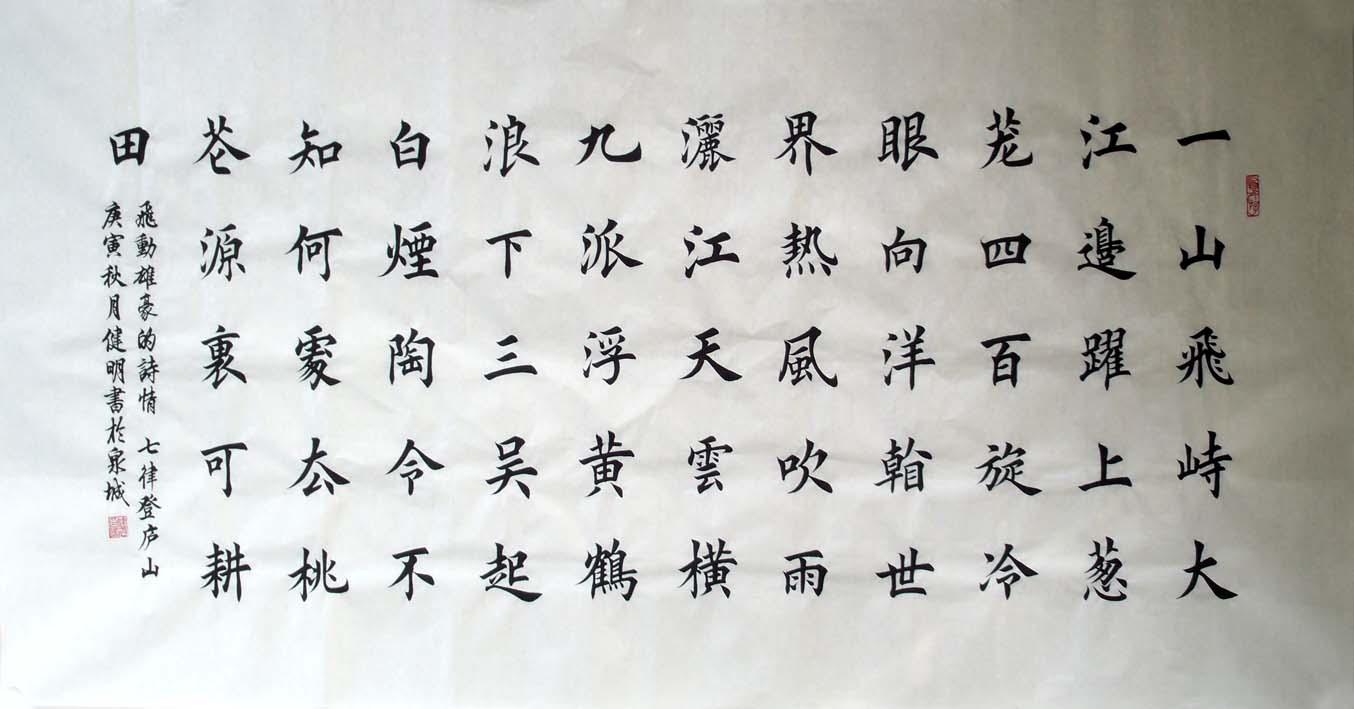 一山飛峙大
江邊躍上葱
茏四百旋冷
眼向洋看世
界熱風吹雨
灑江天雲橫
九派浮黄鶴
浪下三吴起
白煙陶令不
知何處厺桃
花源裏可耕
田
飛動雄豪的詩情 七律登庐山
庚寅秋月健明書於泉城